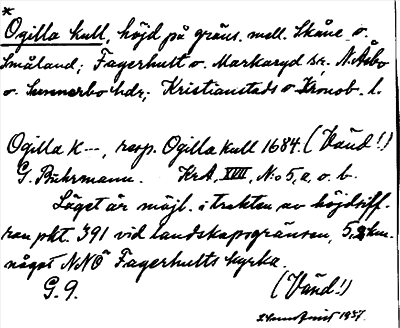 *
Ogilla kull, höjd på gräns. mell. Skåne o.
Småland; Fagerhult o. Markaryd snr; N. Åsbo
o. Sunnerbo hdr; Kristianstads o. Kronob. l.
Ogilla K---, resp. Ogilla kull 1684. (Vänd!)
G. Buhrmann. KrA, XVII, N:o 5, a, o. b.
Läget är möjl. i trakten av höjdsiff-
ran pkt. 391 vid landskapsgränsen, 5,2 km.
något NNÖ Fagerhults kyrka.
G. 9. (Vänd!)
1937.